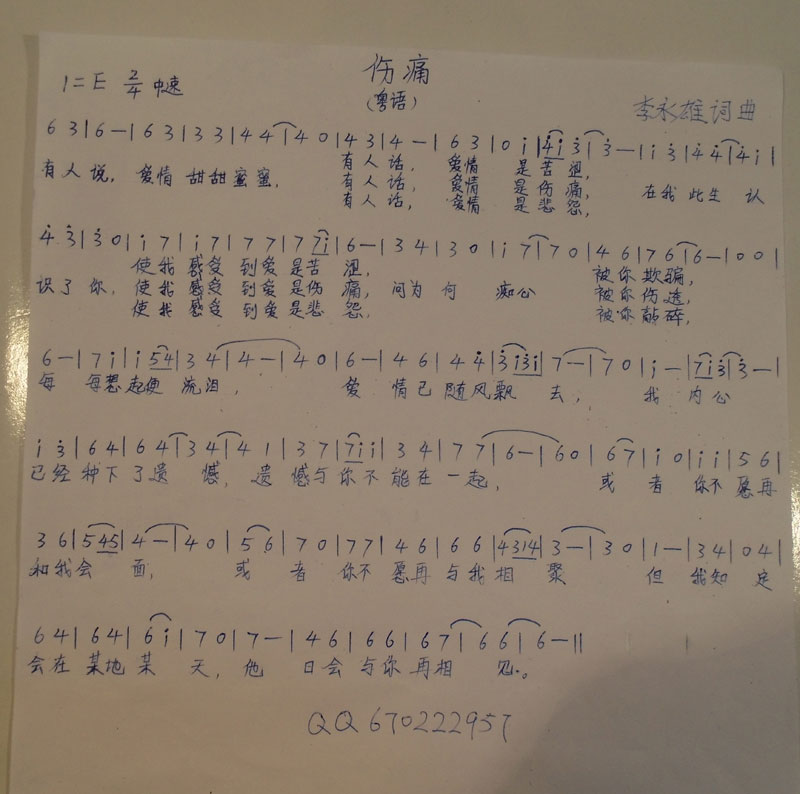 伤痛
1=E 2/4 中速
(粤语)
李永雄词曲
6 3|6—|6 3|3 3|4 4|4 0|4 3|4—|6 3|0 i|4̇ i 3̇|3̇—|i 3̇|4̇ 4̇|4̇ i|
有人说，爱情甜甜蜜蜜，有人话，爱情是苦涩，
有人话，爱情是伤痛，在我此生认
有人话，爱情是悲怨，
4̇ 3̇|3̇ 0|i 7|i 7|7 7|7 7i|6—|3 4|3 0|i 7|7 0|4 6|7 6|6—|0 0|
使我感受到爱是苦涩，被你欺骗，
识了你，使我感受到爱是伤痛，问为何痴心被你伤透，
使我感受到爱是悲怨，被你敲碎，
6—|7 i|i 54|3 4|4—|4 0|6—|4 6|4 4̇|3̇i3̇i|7—|7 0|i—|7i3̇|3̇—|
每每想起便流泪，爱情已随风飘去，我内心
i 3̇|6 4|6 4|3 4|4 1|3 7|7i i|3 4|7 7|6—|6 0|6 7|i 0|i i|5 6|
已经种下了遗憾，遗憾与你不能在一起，或者你不愿再
3 6|545|4—|4 0|5 6|7 0|7 7|4 6|6 6|4314|3—|3 0|1—|3 4|0 4|
和我会面，或者你不愿再与我相聚但我知定
6 4|6 4|6 i|7 0|7—|4 6|6 6|6 7|6 6|6—||
会在某地某天，他日会与你再相见。
QQ 670222957